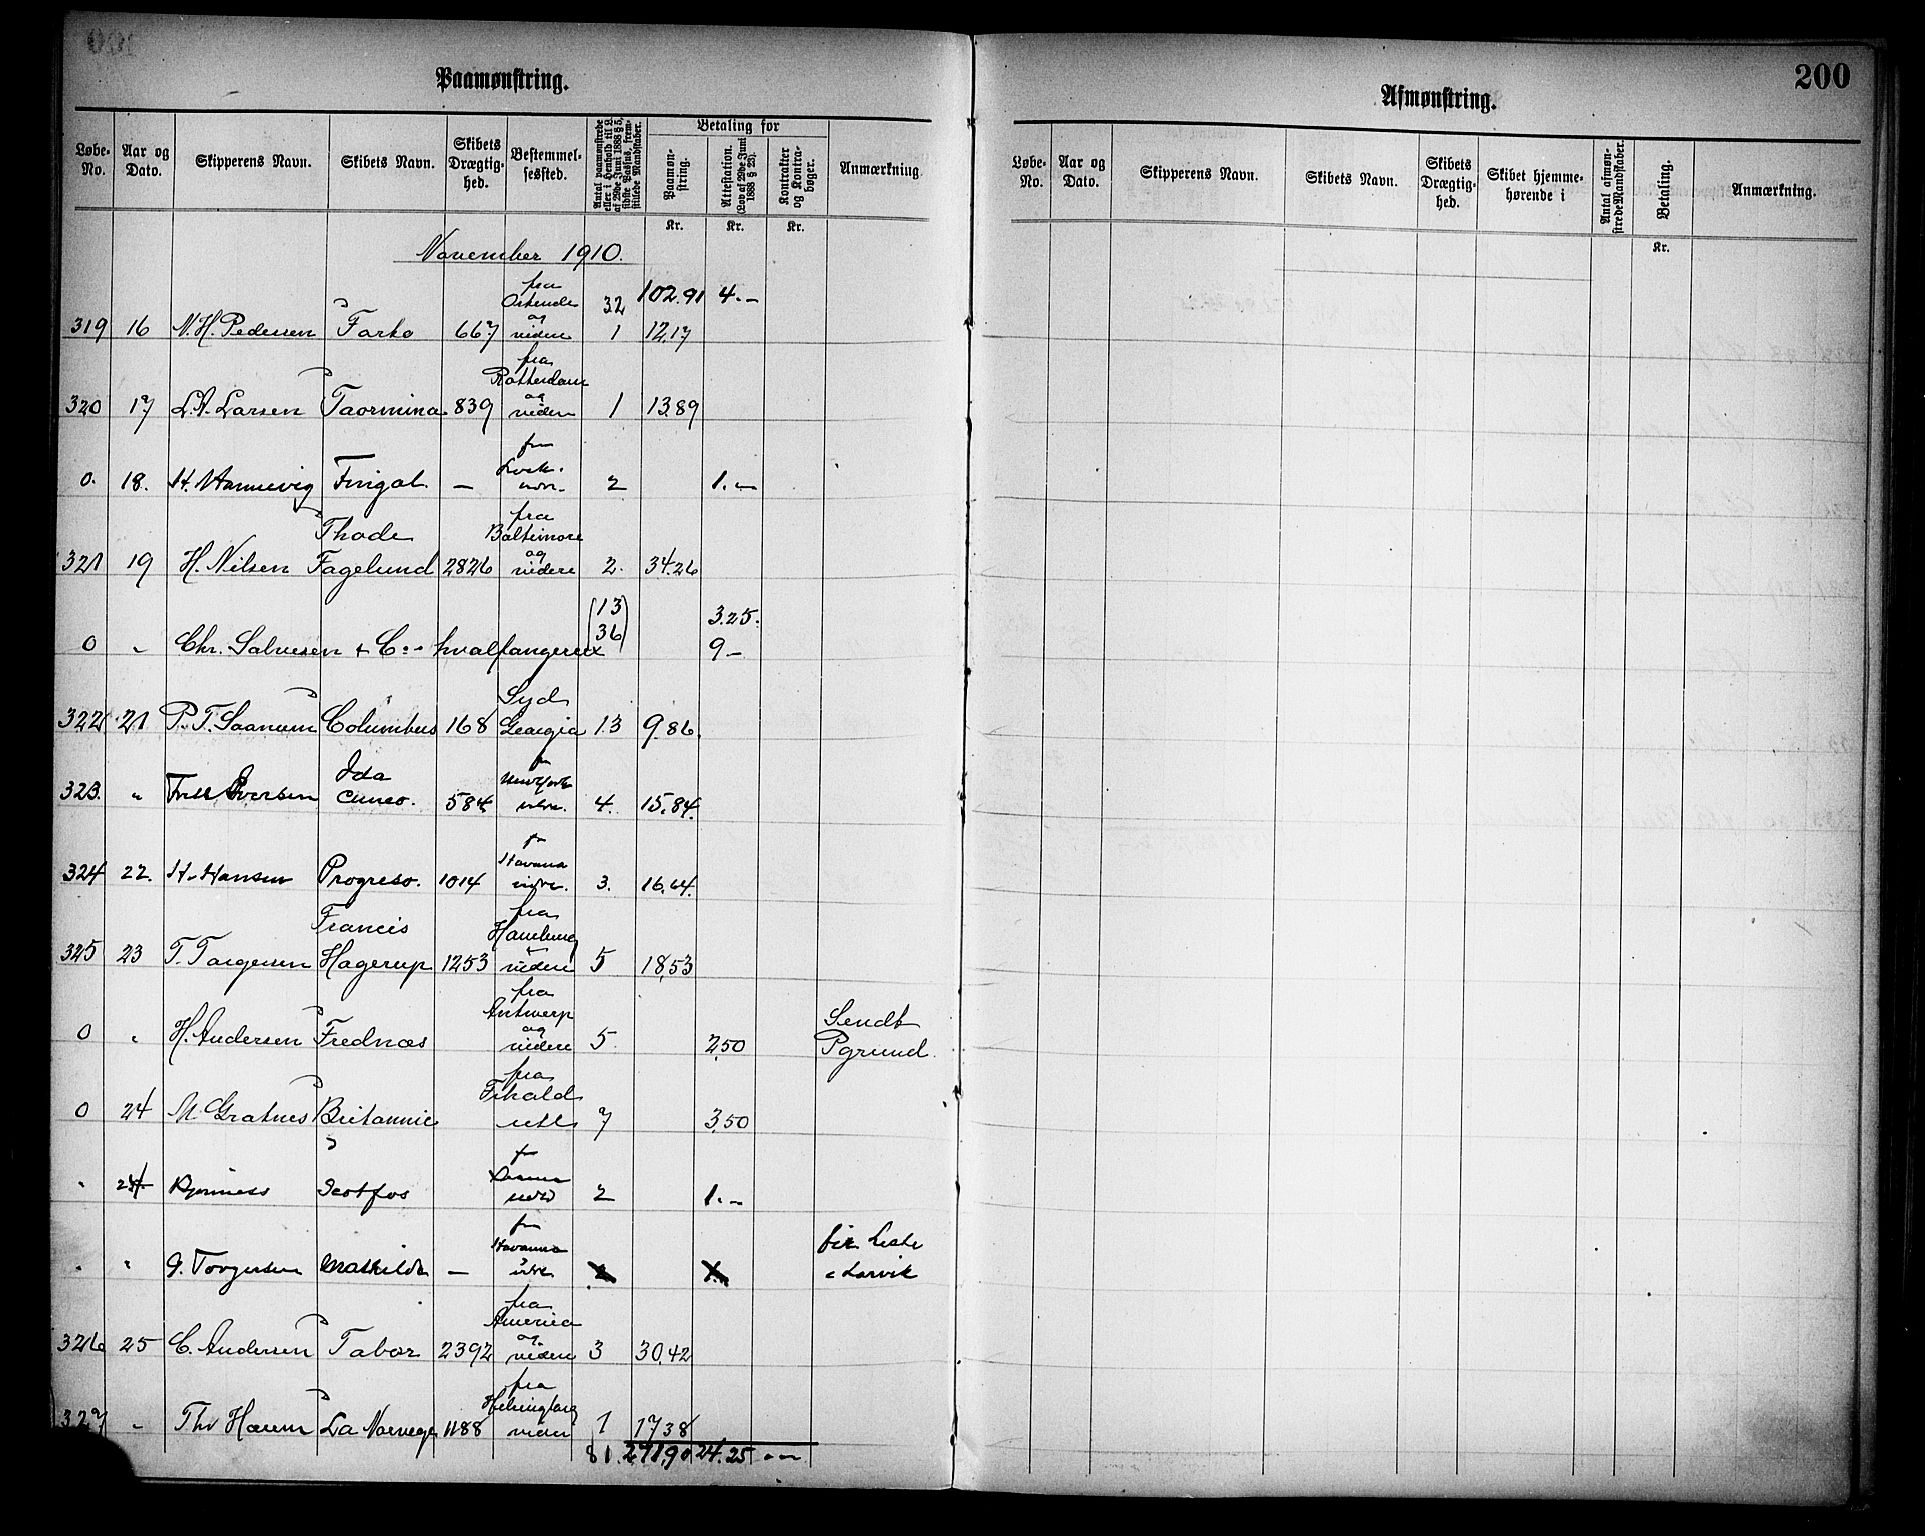 Paamønstring.
Løbe-No. Aar og Dato. Skipperens Navn. Skibets Navn. Skibets Drægtighed. Bestemmelsessted. Antal paamønstrede eller i Henhold til L. af 29de Juni 1888 § 5, sidste Passus, fremstillede Mandskaber. Betaling for Paamønstring. Attestation. (Lov af 29de Juni 1888 § 23). Kontrakter og Kontrabøger. Anmærkning.
Kr. Kr. Kr.
November 1910.
fra
Ostende 32 102.91 4.-
og
319 16 N.H. Pedersen Farko 667 videre 1 12,17
fra
Rotterdam
og
320 17 L.A. Larsen Taormina 839 videre 1 13.89
0. 18. H. Hannevig Fingal — 2 1.-
Thode fra
Baltimore
og
321 19 H. Nilsen Fagelund 2826 videre 2. 34.26
(13) 3.25.
(36)
0 " Chr. Salvesen & Co - hvalfangere 9-
Syd
322 21 P. T. Saanum Columbus 168 Georgia 13 9.86.
Ida f
New York
323. " Iversen Cuneo. 584 4. 15.84.
f
Havana
324 22. H. Hansen Progreso. 1014 3. 16.64.
Francis fra
Hamburg
325 23 T. Torgersen Hagerup 1253 videre 5 18,53
fra
Antwerp Sendt
og
0 " H. Andersen Frednæs videre 5 2,50 Pgrund.
fra
0 24 M. Gratnes Britannic 7 3,50
" 24 Scotfos 2 1.-
Havanna
" " Torgersen Mathilde — 2 1.- Larvik
fra
America
og
326 25 C. Andersen Tabor 2392 videre 3 30,42
fra
Helsingborg
327 " Thv Harum La Norvege 1188 videre 1 17 38
81. 271,90 24.25 " —
Afmønstring.
200
Løbe-No. Aar og Dato. Skipperens Navn. Skibets Navn. Skibets Drægtighed. Skibet hjemmehørende i Antal afmønstrede Mandskaber. Betaling. Anmærkning.
Kr.